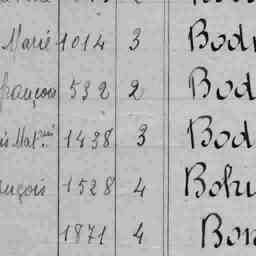 Marie 1014 3 Bod
françois 532 2 Bod
is Mat. 1438 3 Bod
ançois 1528 4 Bohu
1871 4 Bon